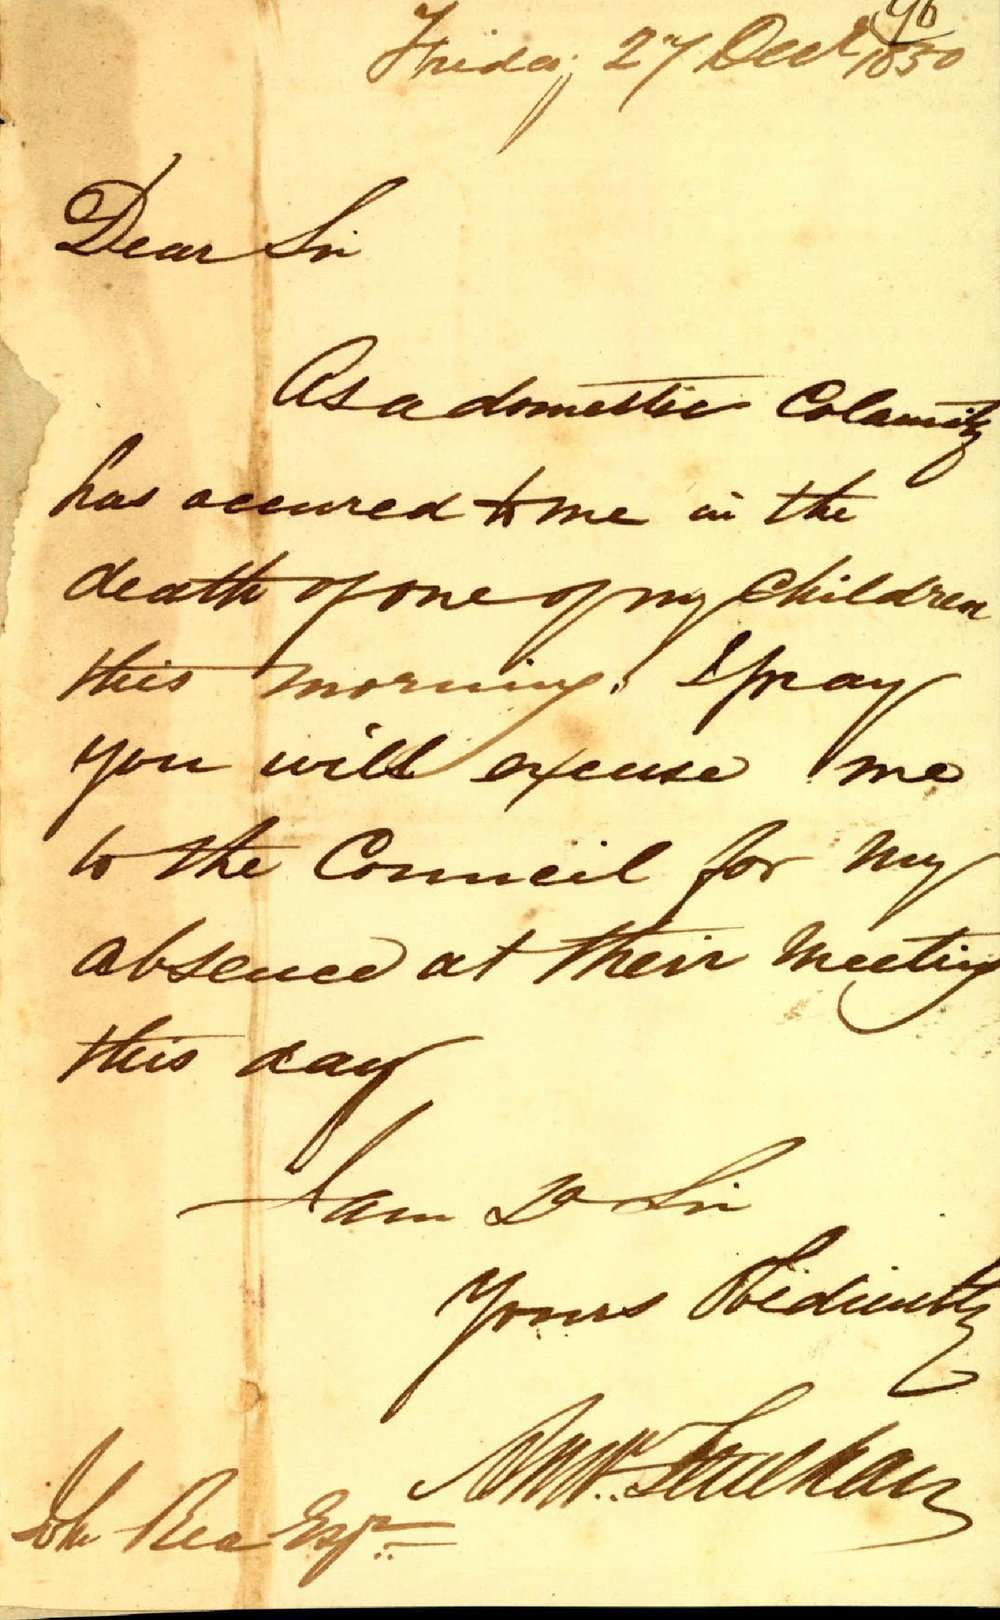 96
Friday 27 Decr 1850
Dear Sir
As a domestic Calamity
has occured to me in the
death of one of my Children
this morning. I pray
you will excuse me
to the Council for my
absence at their Meeting
this day
I am Dr Sir
Yours Obediently
John Rea Esqr